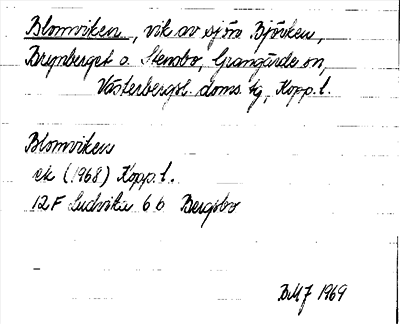 Blomviken, vik av sjön Björken,
Brynberget o. Stensbo, Grangärde sn,
Västerbergsl. doms. tg, Kopp. l.
Blomviken
ek (1968) Kopp. l.
12F Ludvika 6 b Bergsbo
BMJ 1969